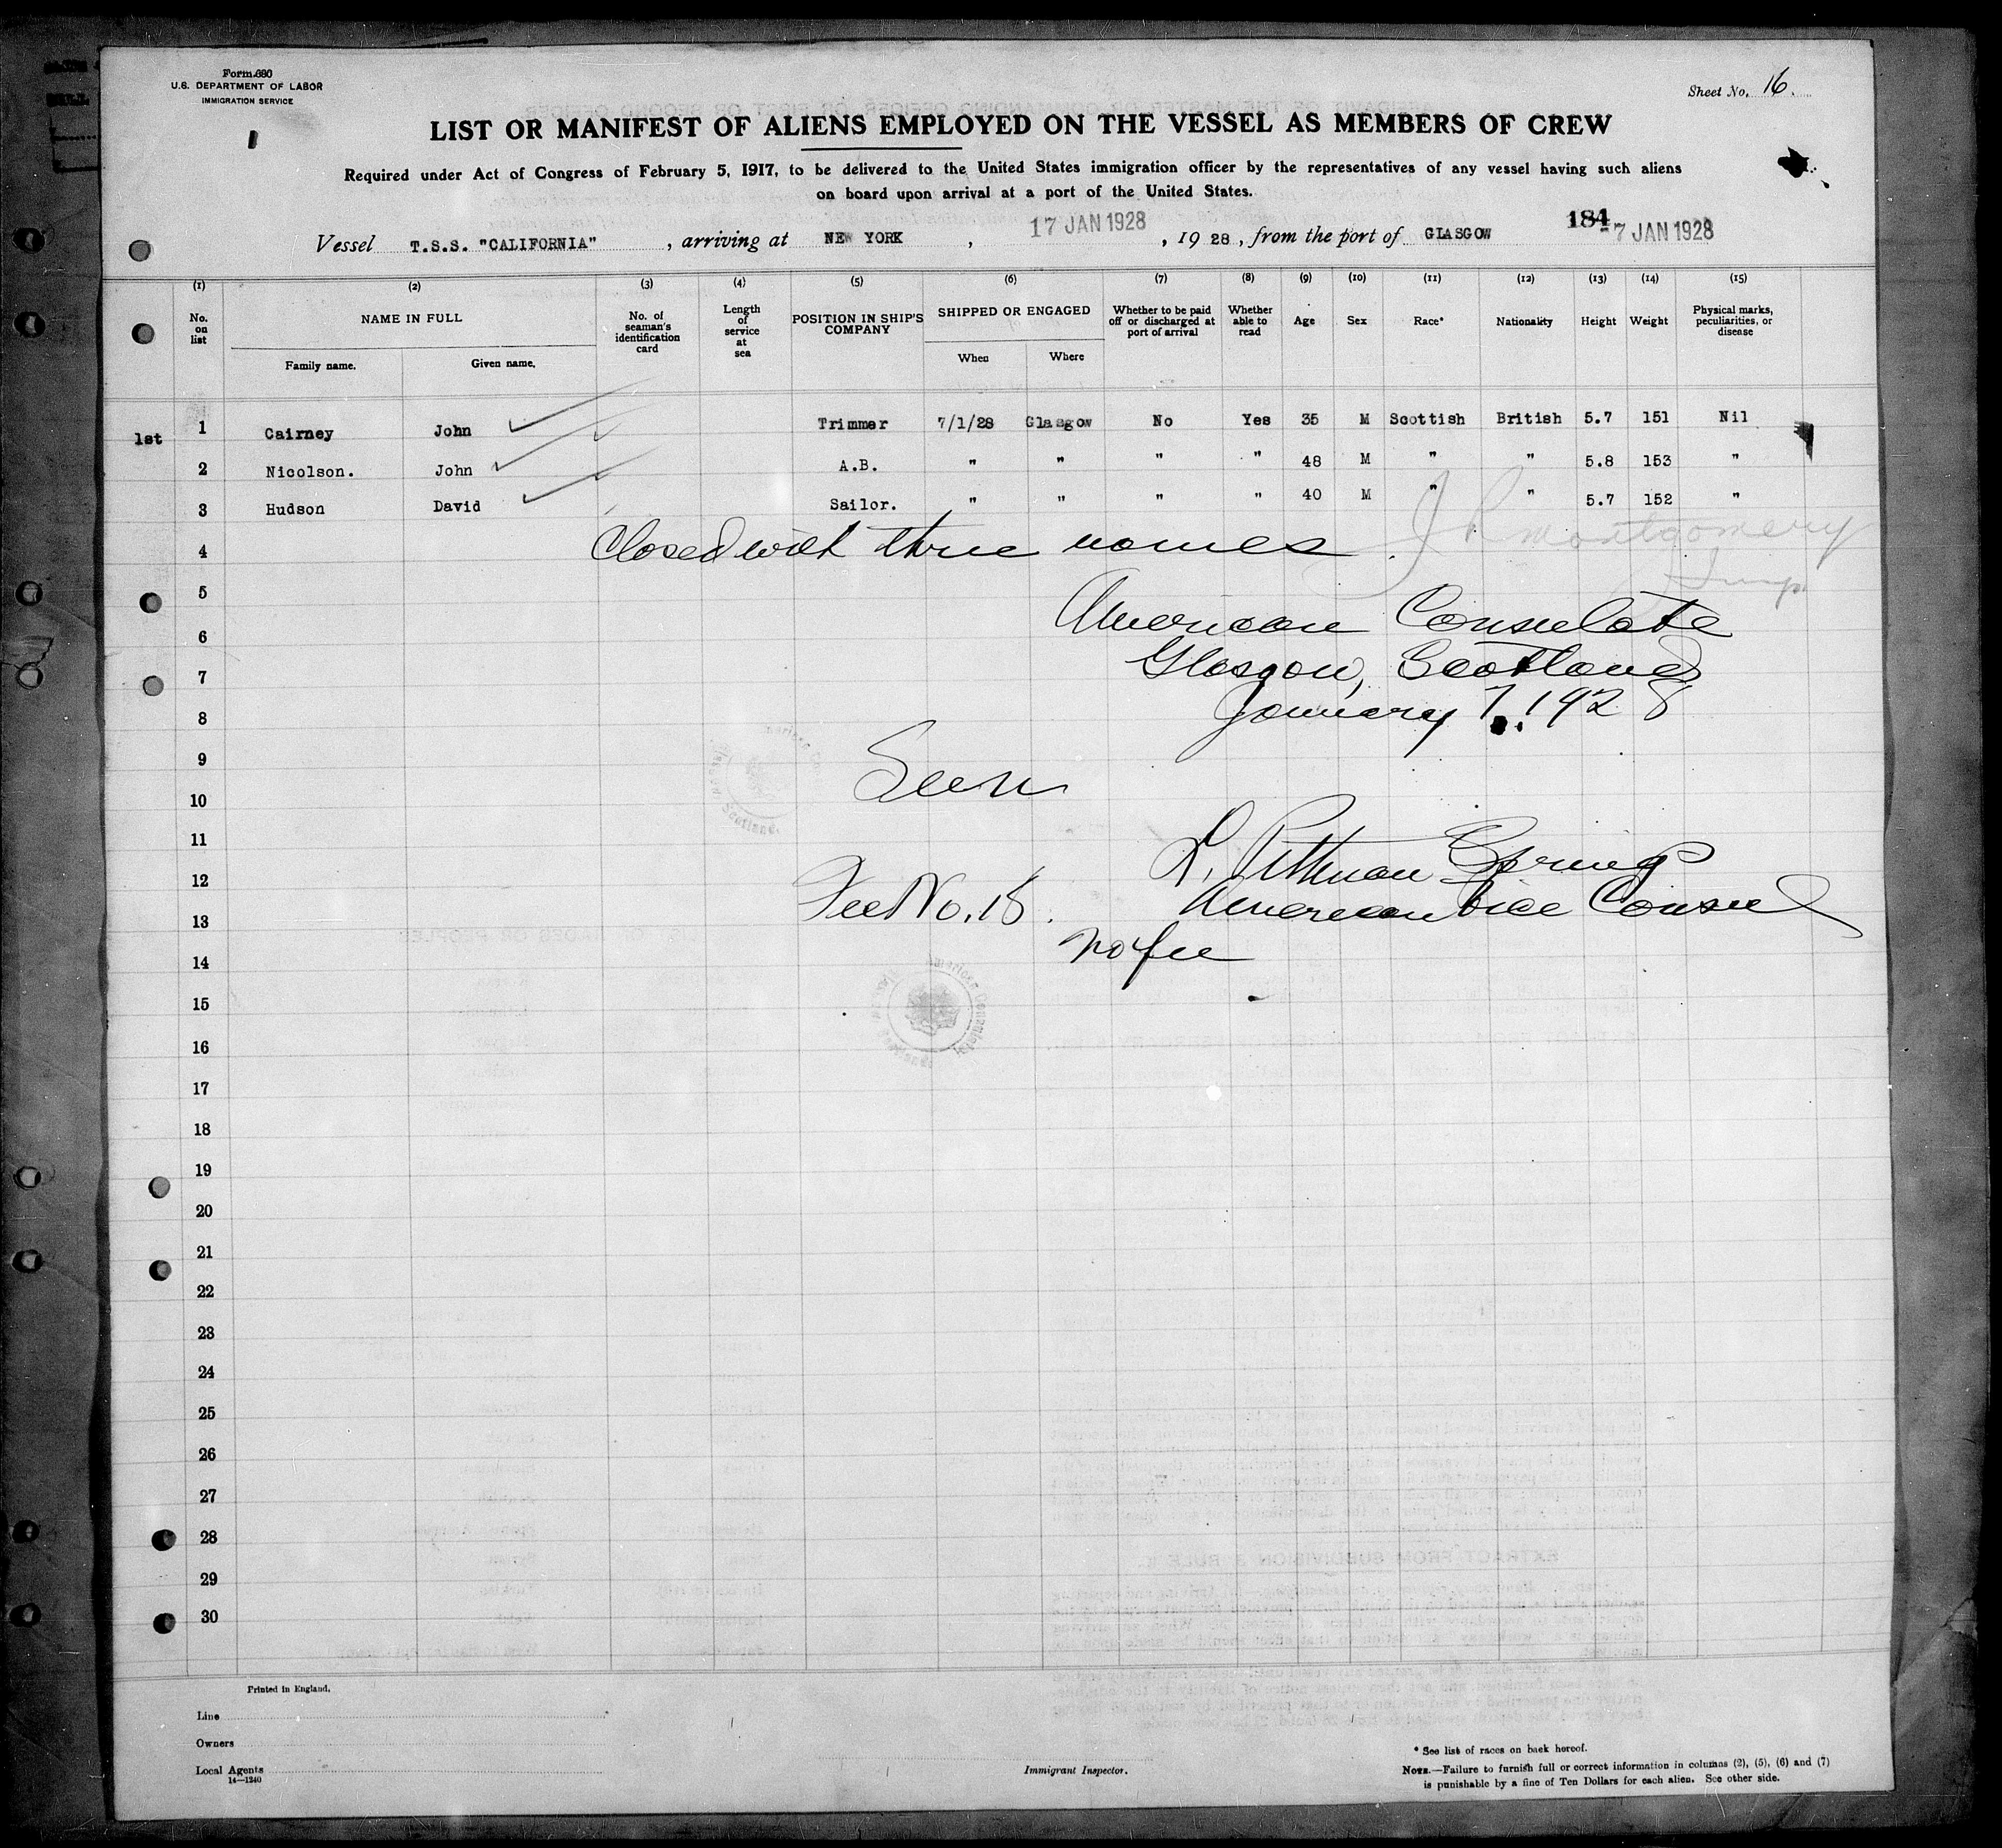 Form 680
U.S. DEPARTMENT OF LABOR
IMMIGRATION SERVICE
Sheet No. 16.
LIST OR MANIFEST OF ALIENS EMPLOYED ON THE VESSEL AS MEMBERS OF CREW
Required under Act of Congress of February 5, 1917, to be delivered to the United States immigration officer by the representatives of any vessel having such aliens
on board upon arrival at a port of the United States.
184
Vessel T.S.S. "CALIFORNIA", arriving at NEW YORK, 17 JAN 1928, 1928, from the port of GLASGOW -7 JAN 1928
(1) (2) (3) (4) (5) (6) (7) (8) (9) (10) (11) (12) (13) (14) (15)
No. on list NAME IN FULL Family name. Given name. No. of seaman's identification card Length of service at sea POSITION IN SHIP'S COMPANY SHIPPED OR ENGAGED When Where Whether to be paid off or discharged at port of arrival Whether able to read Age Sex Race* Nationality Height Weight Physical marks, peculiarities, or disease
1st 1 Cairney John Trimmer 7/1/28 Glasgow No Yes 35 M Scottish British 5.7 151 Nil
2 Nicolson. John A.B. " " " " 48 M " " 5.8 153 "
3 Hudson David Sailor. " " " " 40 M " " 5.7 152 "
4 Closed with three names. J R Montgomery
5 American Consulate
6
7 Glasgow, Scotland
8 January 7, 1928
9
10 Seen
11
12 L. Pittman Springs
13 Fee No. 18. American Vice Consul
14 No fee
15
American Consulate
16
17
18
19
20
21
22
23
24
25
26
27
28
29
30
Printed in England.
Line
Owners
Local Agents
14—1240
Immigrant Inspector.
* See list of races on back hereof.
NOTE.—Failure to furnish full or correct information in columns (2), (5), (6) and (7)
is punishable by a fine of Ten Dollars for each alien. See other side.